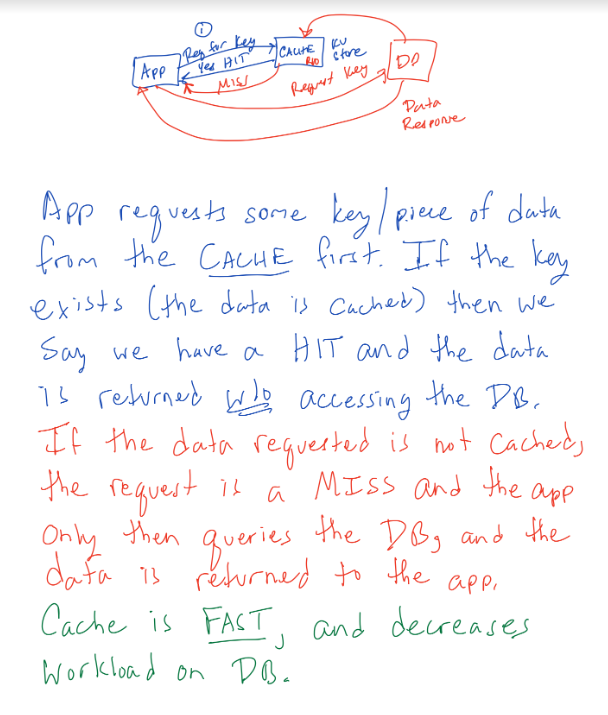 ①
Req for key
Yes HIT
Miss
App
CACHE
KV
Store
Request key
DB
Data
Response
App requests some key/piece of data
from the CACHE first. If the key
exists (the data is cached) then we
say we have a HIT and the data
is returned w/o accessing the DB.
If the data requested is not cached,
the request is a MISS and the app
only then queries the DB, and the
data is returned to the app.
Cache is FAST, and decreases
workload on DB.